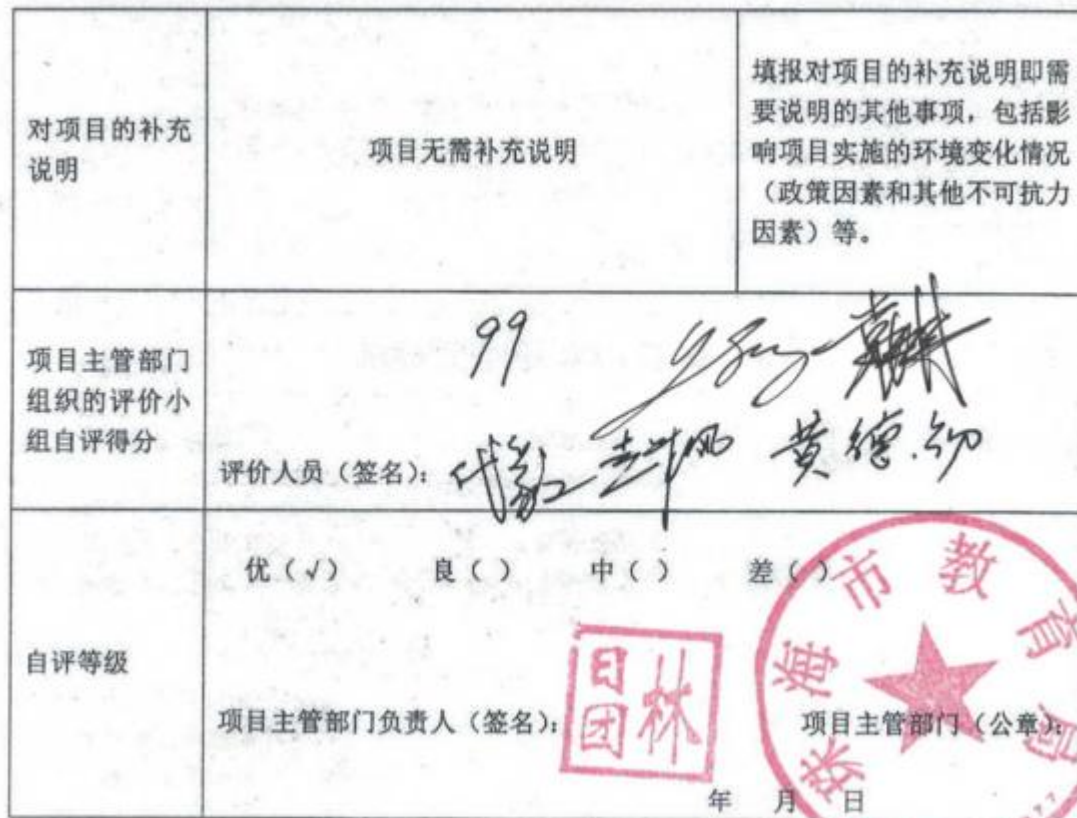 对项目的补充
说明
项目无需补充说明
填报对项目的补充说明即需
要说明的其他事项，包括影
响项目实施的环境变化情况
（政策因素和其他不可抗力
因素）等。
项目主管部门
组织的评价小
组自评得分
99
评价人员（签名）：
黄德
自评等级
优（√） 良（ ） 中（ ） 差（ ）
项目主管部门负责人（签名）：
林
日
团
项目主管部门（公章）：
珠海市教育局
年 月 日